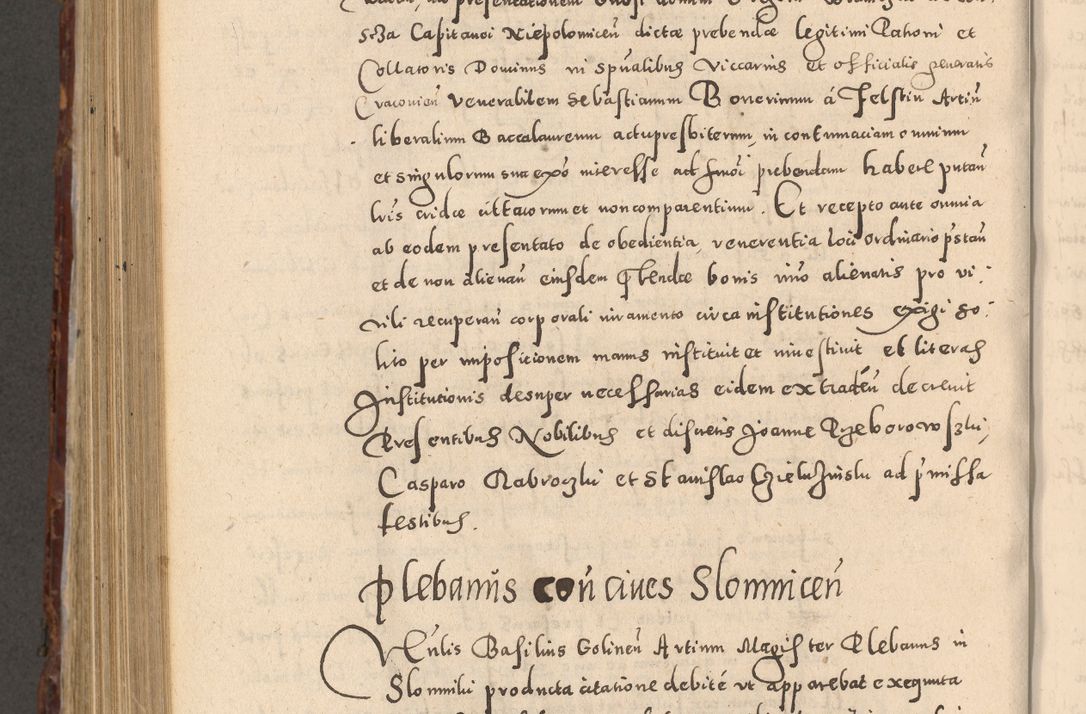 scza Capitanei Niepolomiceñ dictæ prebendæ legitimi Patroni et
Collatoris Dominus in spũalibus Viccarius et officialis generalis
Cracovieñ venerabilem Sebastianum Bonerinum á Felstin Artiũ
liberalium Baccalaureum actu presbiterum, in contumaciam omnium
et singulorum sua exõ interesse ad hmõi prebendam habere putañ
lris cridæ citatorum et non comparentium. Et recepto ante omnia
ab eodem presentato de obedientia, reverentia loci ordinario p̃stañ
et de non alienañ eiusdem p̃bendæ bonis imo alienatis pro vi:
rili recuperañ corporali iuramento circa institutiones exigi so:
lito per impositionem manus instituit et investivit et literas
Institutionis desuper necessarias eidem extradeñ decrevit
Presentibus Nobilibus et discretis Joanne
Casparo et Stanislao ad p̃missa
testibus.
Plebanus coñ cives Slomniceñ
Veñlis Basilius Golineñ Artium Magister Plebanus in
Slomniki producta citatione debité ut apparebat exequuta